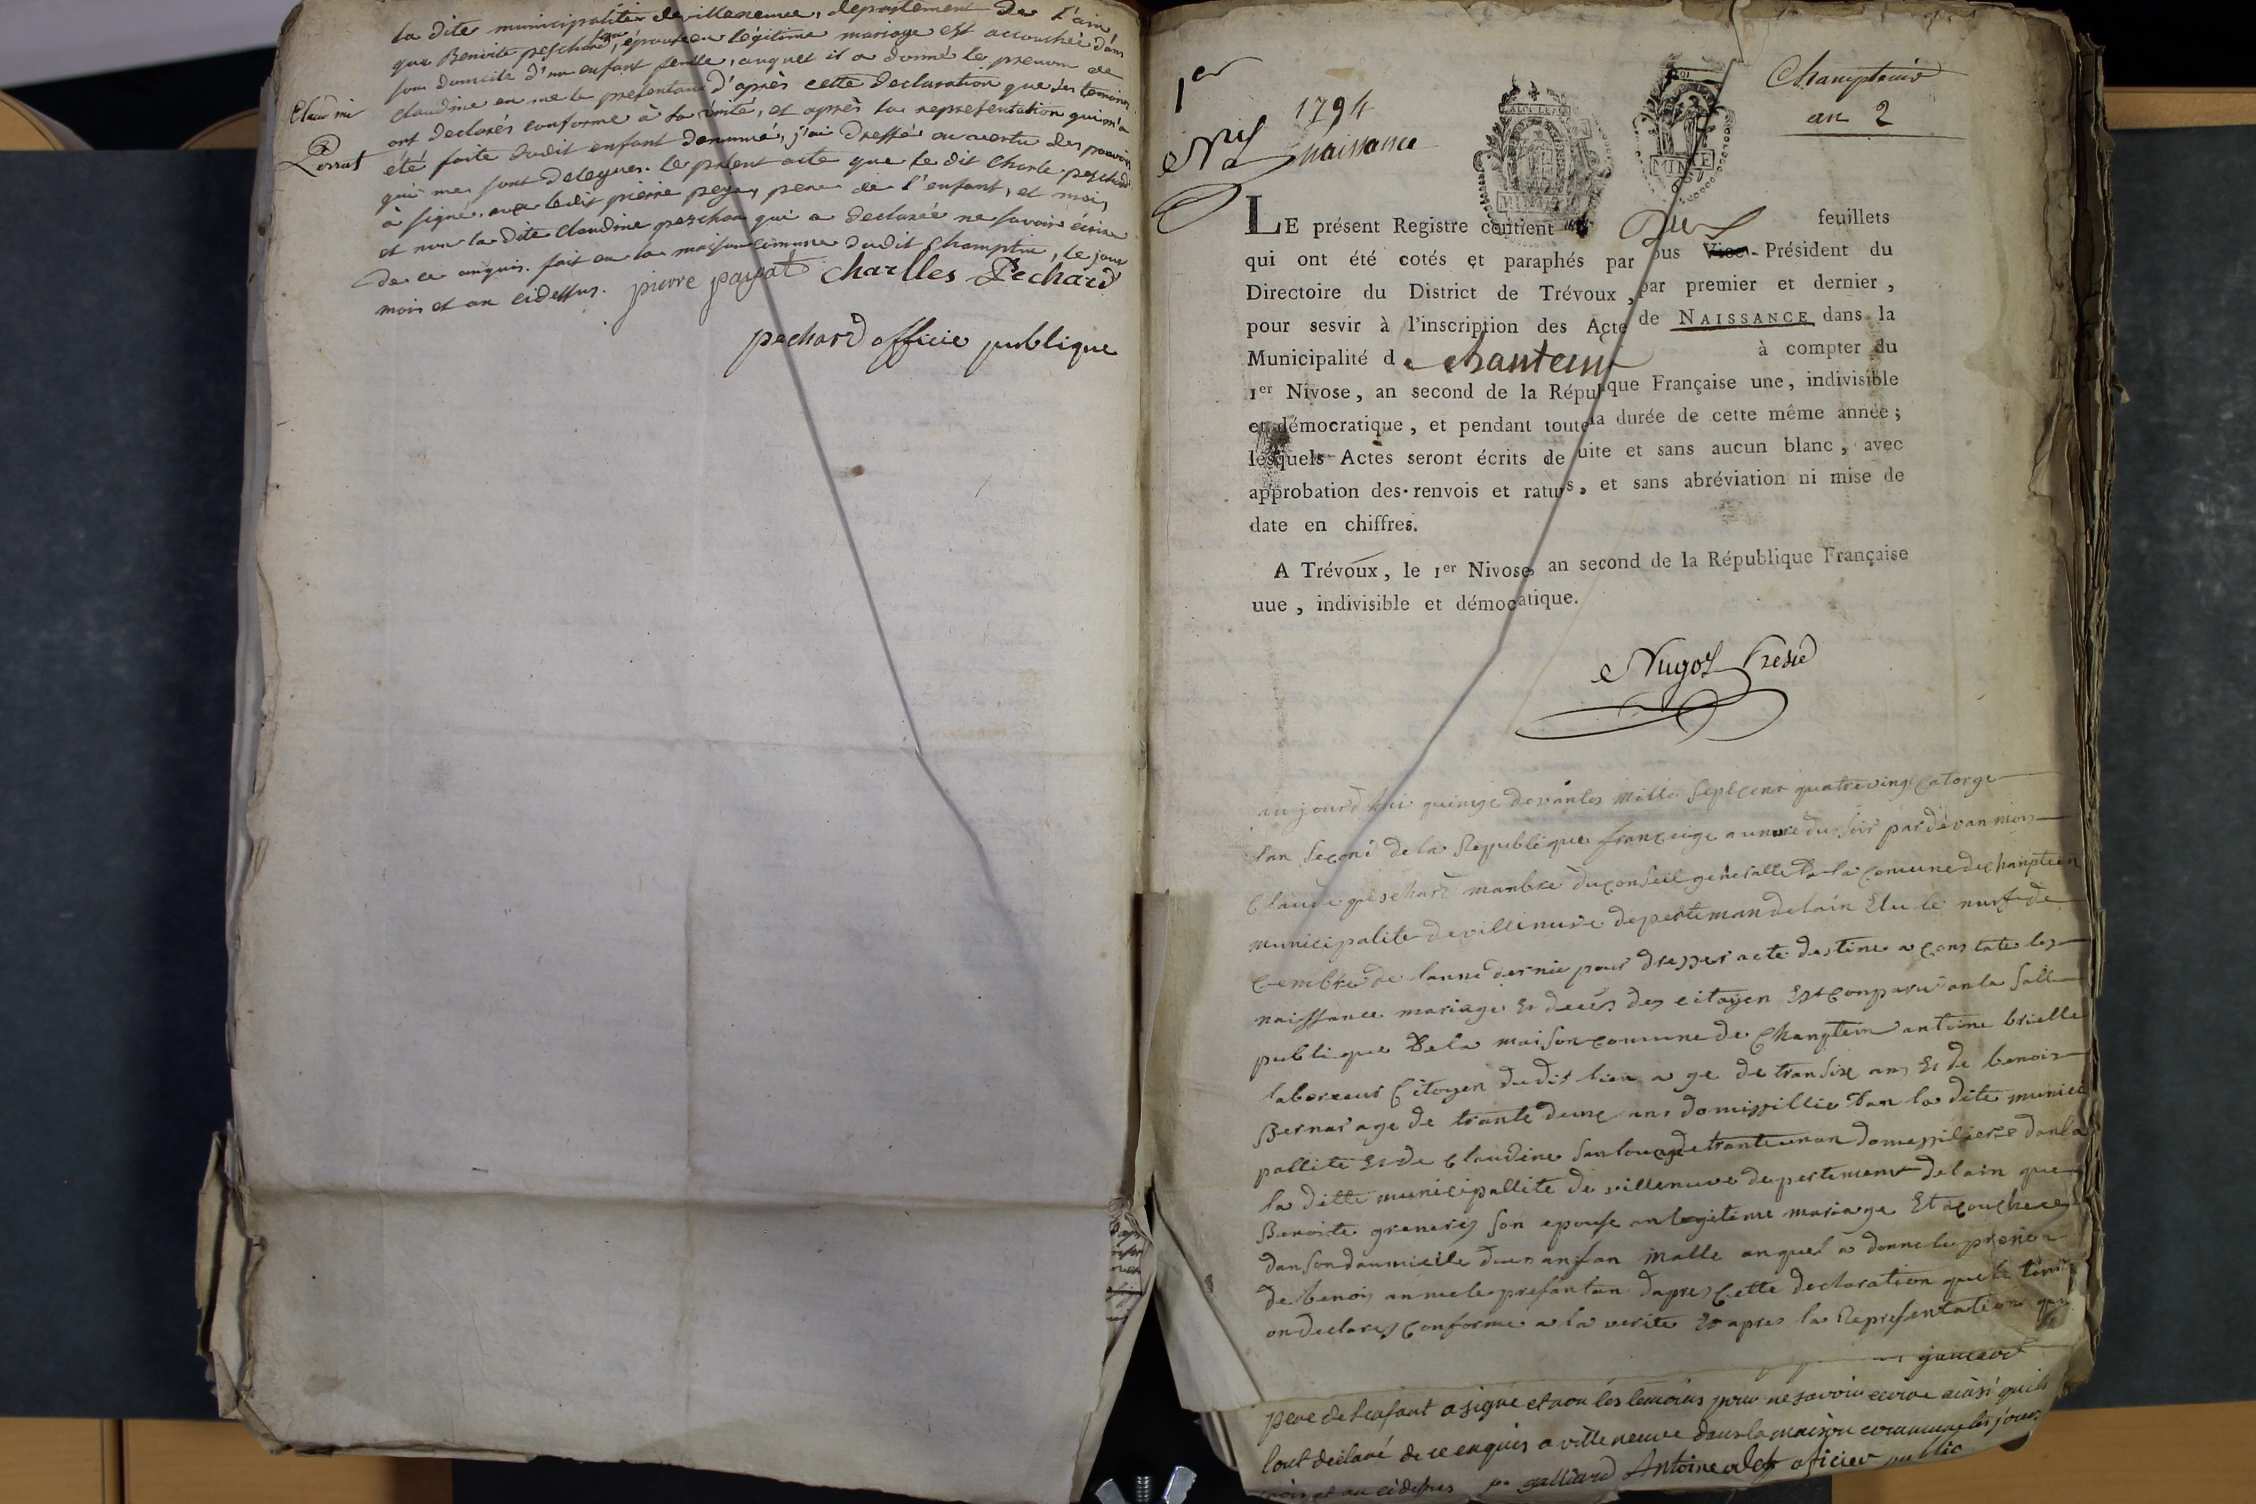 la dite municipalité de villeneuve, departement de l'ain,
que Benoite peschard, épouse en légitime mariage est accouchée dans
son domicile d'un enfant femelle, auquel il a donné le prenom de
claudine en me le presentant d'après cette declaration que les temoins
ont declarés conforme à la vérité, et après la representation qui m'a
été faite dudit enfant denommé, j'ai dressé en vertu des pouvoirs
qui me sont delegués. le présent acte que le dit Charle peschard
à signé, avec ledit pierre payat, pere de l'enfant, et moi,
et non la dite claudine peschard qui a declarée ne savoir écrire
de ce enquis. fait en la maison comune dudit Champtin, le jour
mois et an cidessus. pierre payat charlles Pechard
pechard officie publique
1er
1794
naissance
Champtein
an 2
MINTE
LE présent Registre contient feuillets
qui ont été cotés et paraphés par ous Vice-Président du
Directoire du District de Trévoux, par premier et dernier,
pour sesvir à l'inscription des Acte de NAISSANCE dans la
Municipalité de chantein à compter du
1er Nivose, an second de la Répu que Française une, indivisible
et démocratique, et pendant toute la durée de cette même année;
lesquels Actes seront écrits de uite et sans aucun blanc, avec
approbation des renvois et ratur s, et sans abréviation ni mise de
date en chiffres.
A Trévoux, le 1er Nivose, an second de la République Française
uue, indivisible et démocatique.
aujourd'hui quinze mille septcent quatreving catorze
lan second de la Republique françeige a unure du soir pardevan moi
Claude peschard manbre du conseil generalle de la comune de chanptein
municipalite de villinuve departeman delain Elu le nuf de
cembre de lanné dernie pour dresser acte destine a constate les
naissance mariage Et decés des citoyen Est conparu an la salle
publique de la maison comune de Changtein antoine brielle
laboreeur Citoyen dudit lieu age de transix ans Et de benoit
Bernar age de trante deux ans domissillie dan la dite munici
pallite Et de Claudine age de trante un an domissiliere dan la
la ditte municipallite de villenuve departement delain que
Benoite son epouse an legitime mariage Et acouchee
dan son daumicile dun anfan malle auquel a donne le prenon
de benoit an me le presantan dapres cette declaration que le temoin
on declares conforme a la verite Et apres la Representation qui
pere de l'enfant a signé et non les temoins pour ne savoir ecrire ainsi quils
l'ont declaré de ce enquis a villeneuve dans la maison commune les jours
mois et an cidessus Antoine oficier public